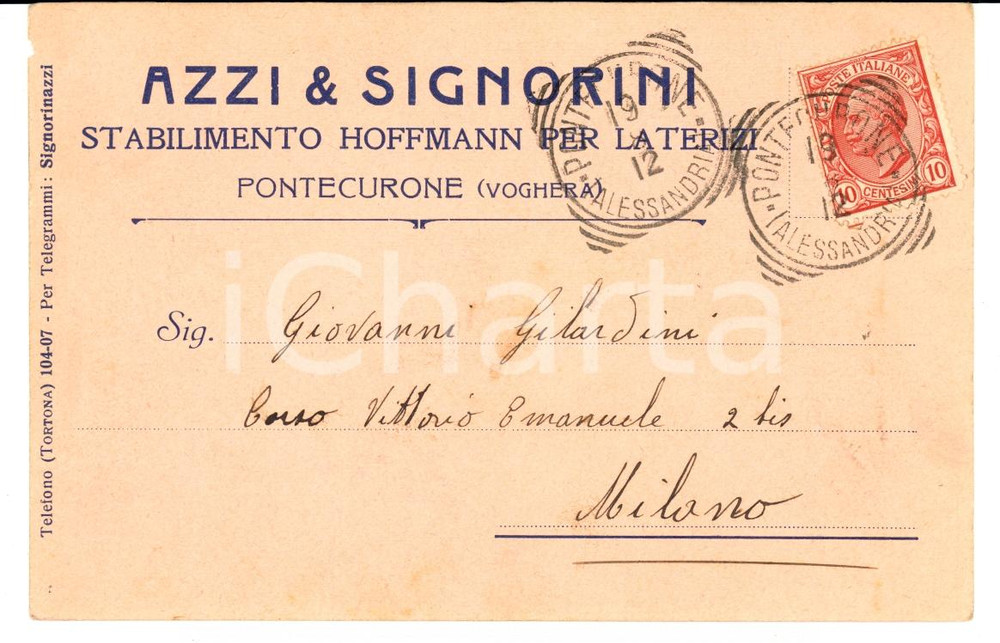 AZZI & SIGNORINI
STABILIMENTO HOFFMANN PER LATERIZI
PONTECURONE (VOGHERA)
Telefono (TORTONA) 104-07 - Per Telegrammi: Signorinazzi
POSTE ITALIANE
10 CENTESIMI 10
PONTECURONE
19
12
(ALESSANDRIA)
PONTECURONE
12
(ALESSANDRIA)
Sig. Giovanni Gilardini
Corso Vittorio Emanuele 2 bis
Milano
iCharta